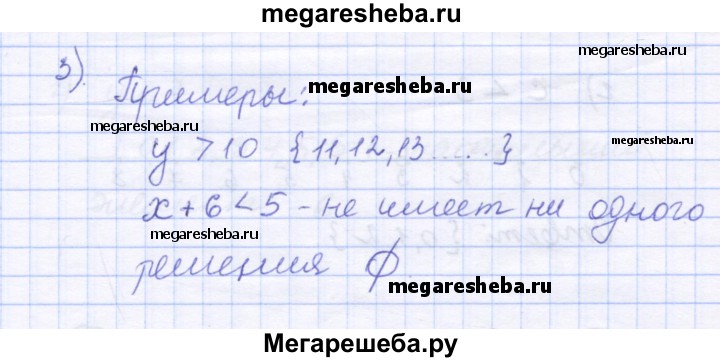 megaresheba.ru
megaresheba.ru
3).
Примеры: megaresheba.ru
megaresheba.ru
y > 10 {11, 12, 13.....}
megaresheba.ru
x + 6 < 5 - не имеет ни одного
megaresheba.ru
решения ∅.
megaresheba.ru
Мегарешеба.ру